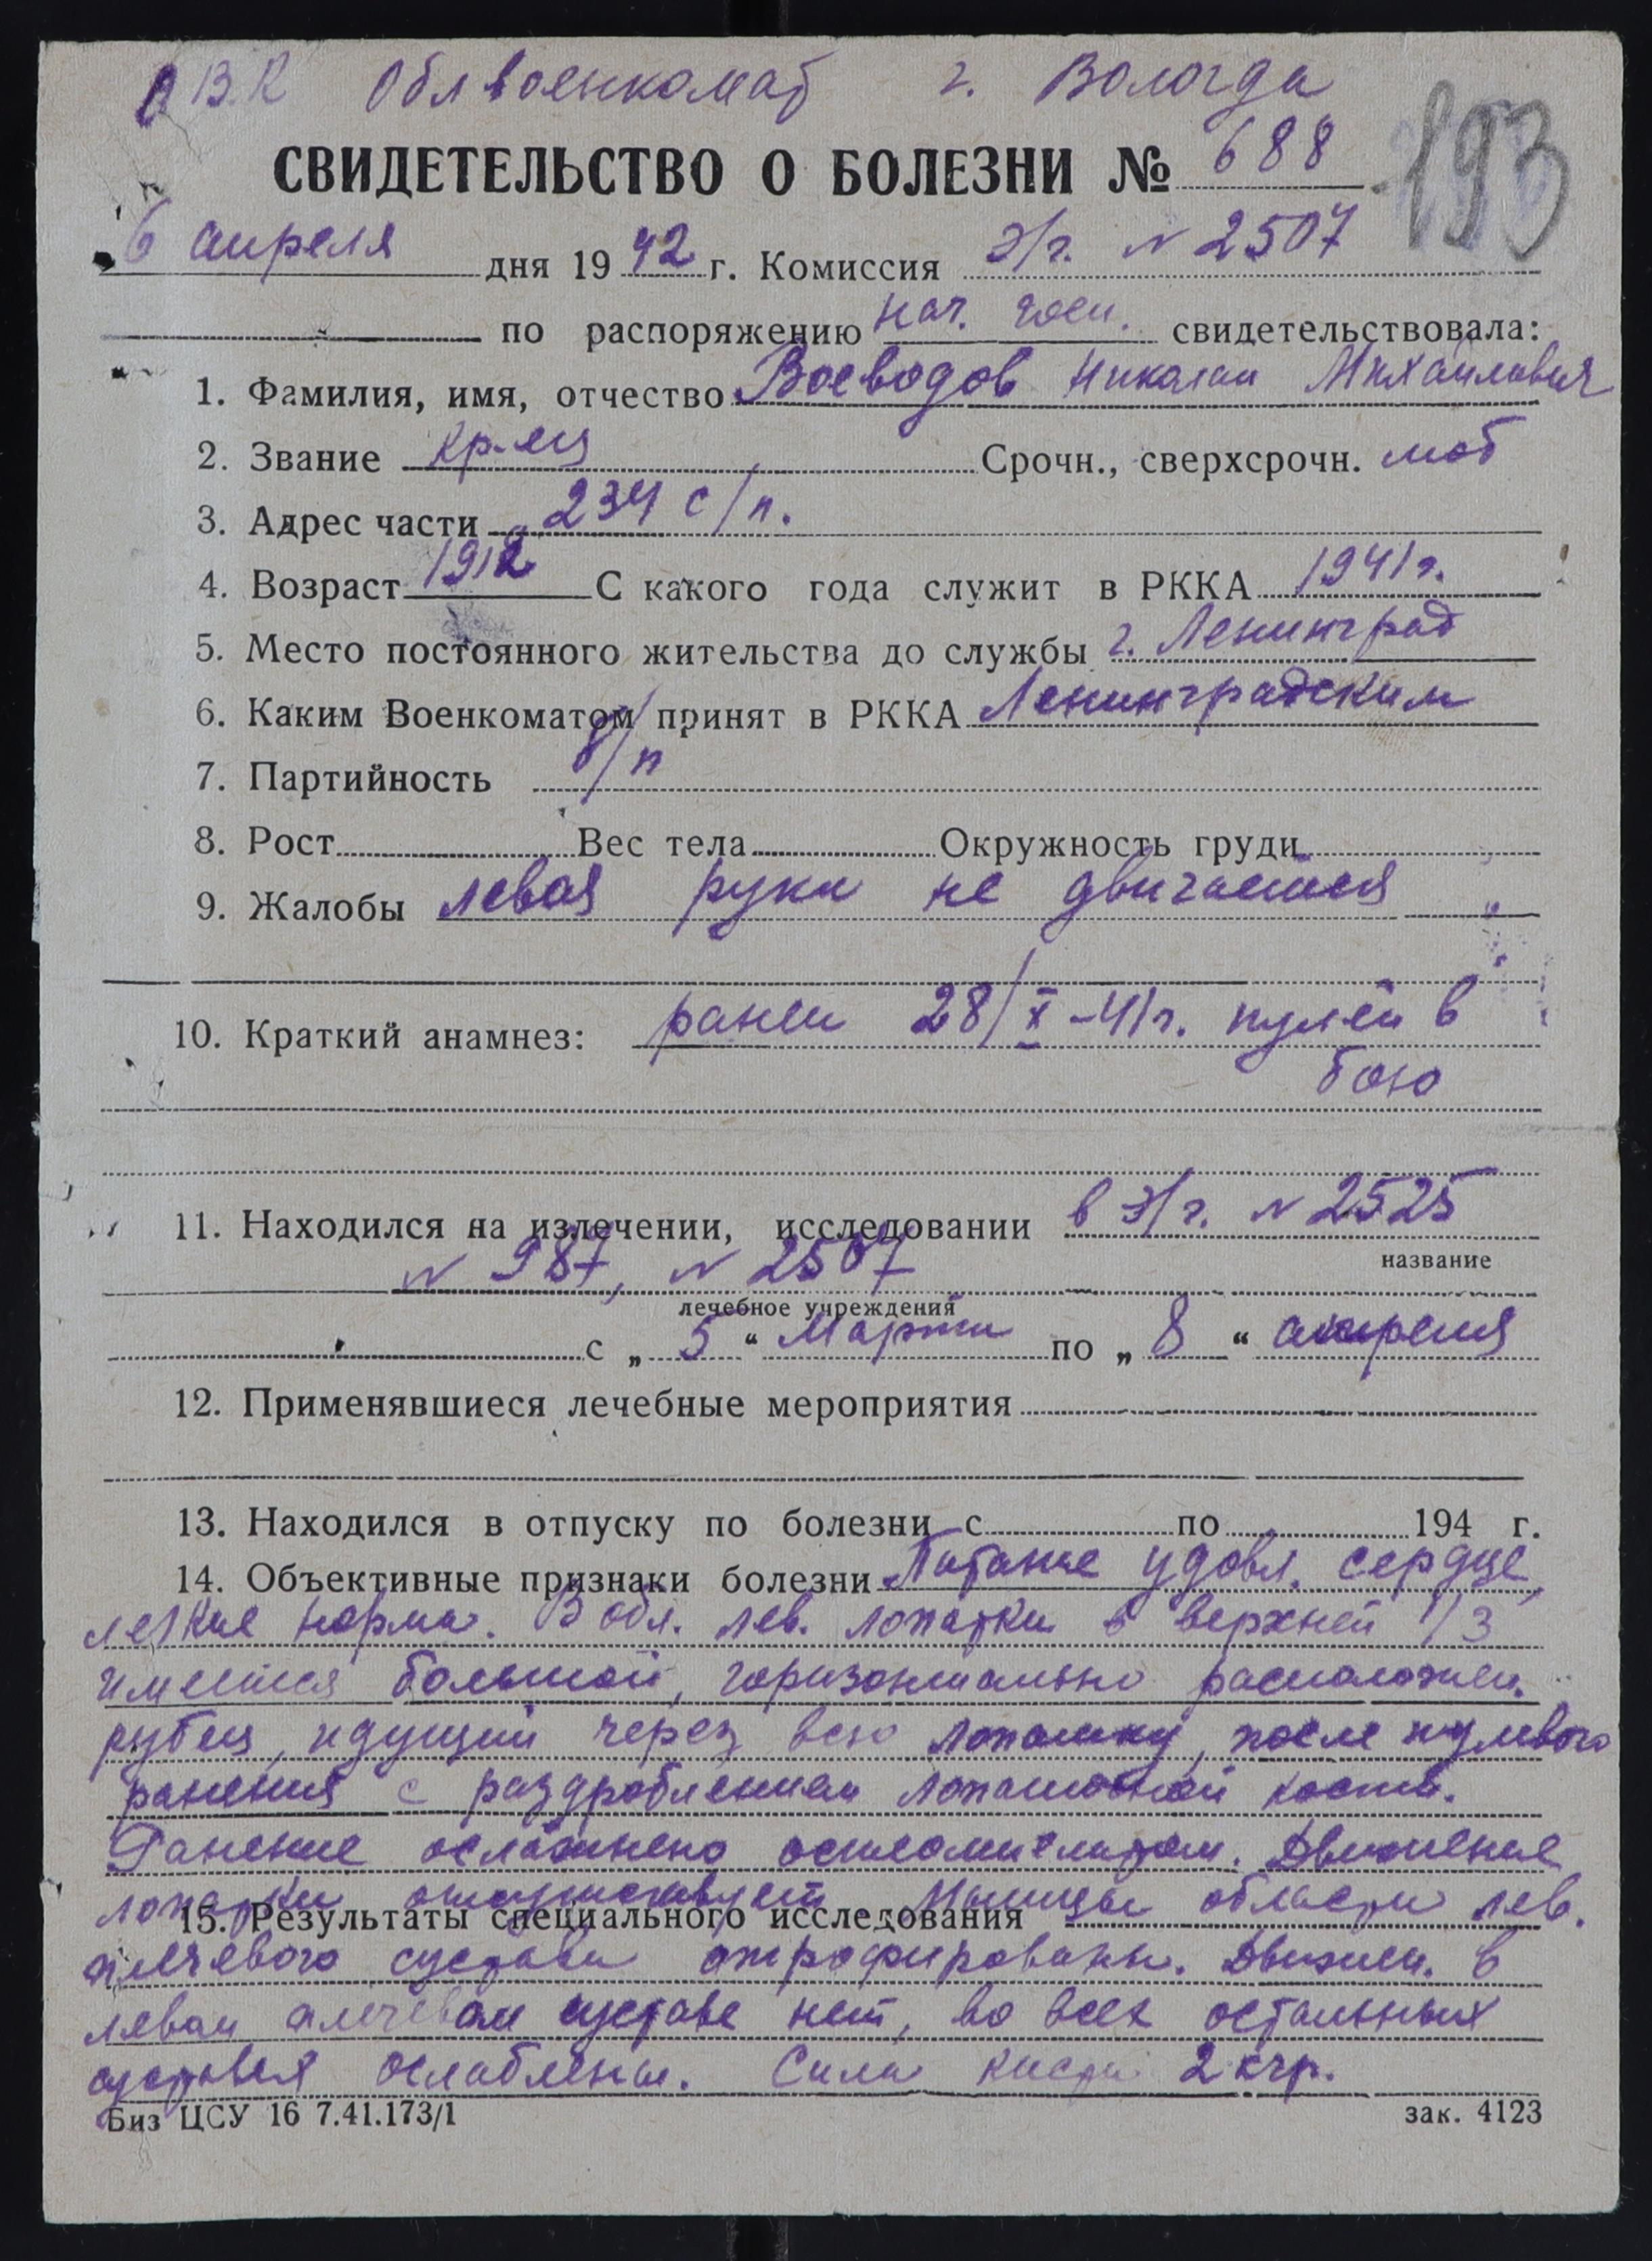 В.К Облвоенкомат г. Вологда
СВИДЕТЕЛЬСТВО О БОЛЕЗНИ № 688
193
6 апреля дня 1942 г. Комиссия э/г. N 2507
по распоряжению нач. госп. свидетельствовала:
1. Фамилия, имя, отчество Воеводов Николай Михайлович
2. Звание кр-ец Срочн., сверхсрочн. моб
3. Адрес части 234 с/п.
4. Возраст 1912 С какого года служит в РККА 1941 г.
5. Место постоянного жительства до службы г. Ленинград
6. Каким Военкоматом принят в РККА Ленинградским
7. Партийность б/п
8. Рост Вес тела Окружность груди
9. Жалобы левая рука не двигается
10. Краткий анамнез: ранен 28/X-41 г. пулей в
бою
11. Находился на излечении, исследовании в э/г. N 2525
название
N 987, N 2507
лечебное учреждения
с „ 5 “ Марта по „ 8 “ апреля
12. Применявшиеся лечебные мероприятия
13. Находился в отпуску по болезни с по 194 г.
14. Объективные признаки болезни Питание удовл. сердце,
легкие норма. В обл. лев. лопатки в верхней 1/3
имеется большой, горизонтально расположен.
рубец, идущий через всю лопатку, после пулевого
ранения с раздроблением лопаточной кости.
Ранение осложнено остеомиелитом. Движение
лопатки отсутствует. Мышцы области лев.
15. Результаты специального исследования
плечевого сустава атрофированы. Движен. в
левом плечевом суставе нет, во всех остальных
суставах ослаблены. Сила кисти 2 кгр.
Биз ЦСУ 16 7.41.173/1 зак. 4123